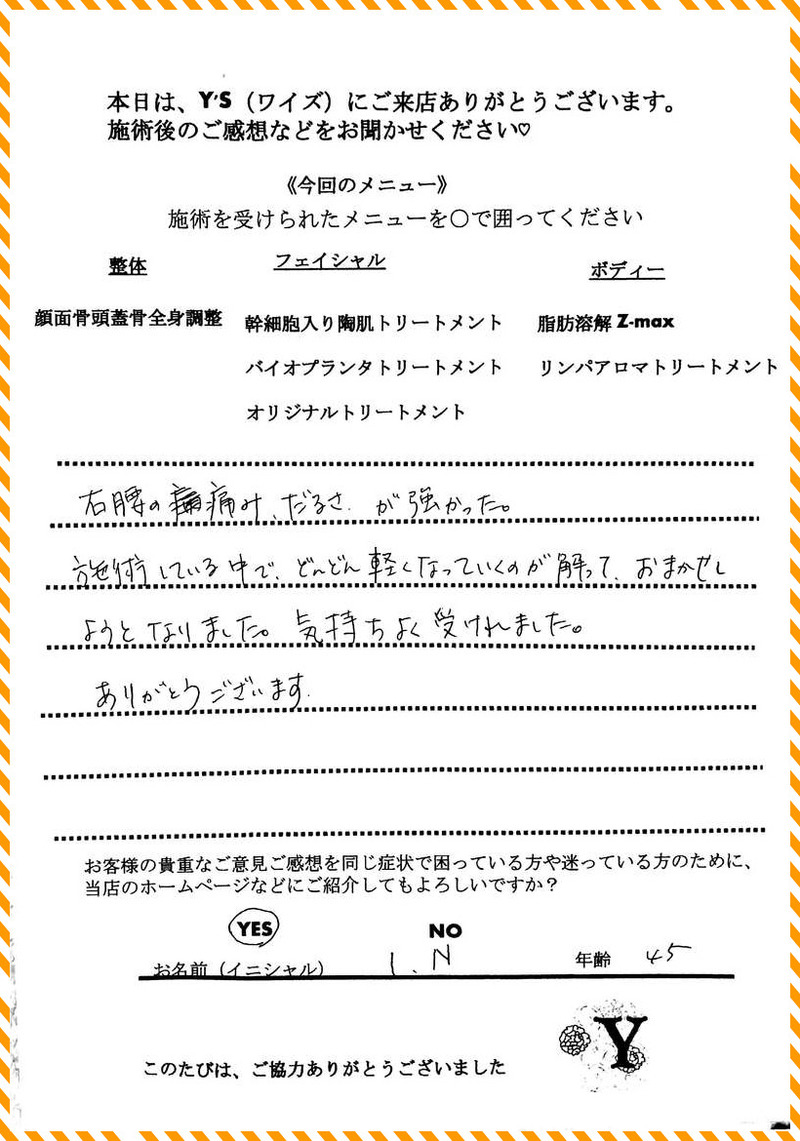 本日は、Y'S（ワイズ）にご来店ありがとうございます。
施術後のご感想などをお聞かせください♡
《今回のメニュー》
施術を受けられたメニューを〇で囲ってください
整体 フェイシャル ボディー
顔面骨頭蓋骨全身調整 幹細胞入り陶肌トリートメント 脂肪溶解 Z-max
バイオプランタトリートメント リンパアロマトリートメント
オリジナルトリートメント
右腰の痛み、だるさが強かった。
施術している中で、どんどん軽くなっていくのが解って、おまかせし
ようとなりました。気持ちよく受けれました。
ありがとうございます.
お客様の貴重なご意見ご感想を同じ症状で困っている方や迷っている方のために、
当店のホームページなどにご紹介してもよろしいですか？
YES NO
お名前（イニシャル） I.N 年齢 45
Y
このたびは、ご協力ありがとうございました